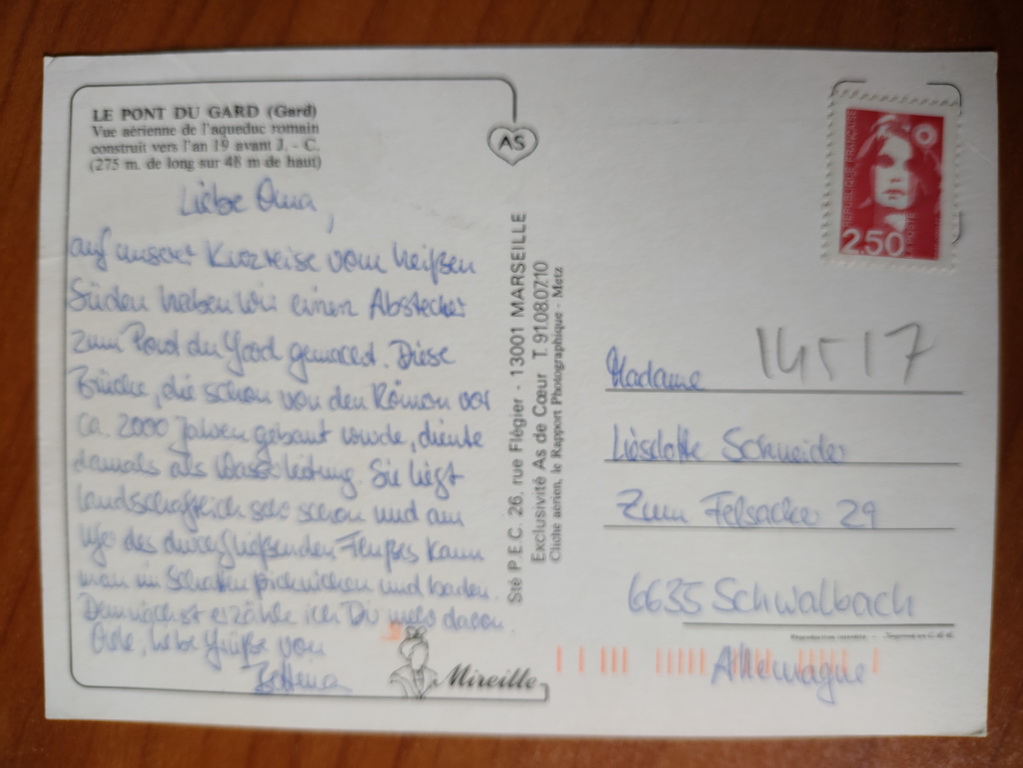 LE PONT DU GARD (Gard)
Vue aérienne de l'aqueduc romain
construit vers l'an 19 avant J. - C.
(275 m. de long sur 48 m de haut)
Liebe Oma,
auf unserer Kurzreise vom heißen
Süden haben wir einen Abstecher
zum Pont du Gard gemacht. Diese
Brücke, die schon von den Römern vor
ca. 2000 Jahren gebaut wurde, diente
damals als Wasserleitung. Sie liegt
landschaftlich sehr schön und am
Ufer des durchfließenden Flußes kann
man im Schatten picknicken und baden.
Demnächst erzähle ich Dir mehr davon.
liebe Grüße von
Bettina
Mireille
AS
Sté P.E.C. 26, rue Flégier - 13001 MARSEILLE
Exclusivité As de Cœur T. 91.08.07.10
Cliché aérien, le Rapport Photographique - Metz
REPUBLIQUE FRANÇAISE
LA POSTE
2,50
14517
Madame
Liselotte Schneider
Zum Felsacker 29
6635 Schwalbach
Allemagne